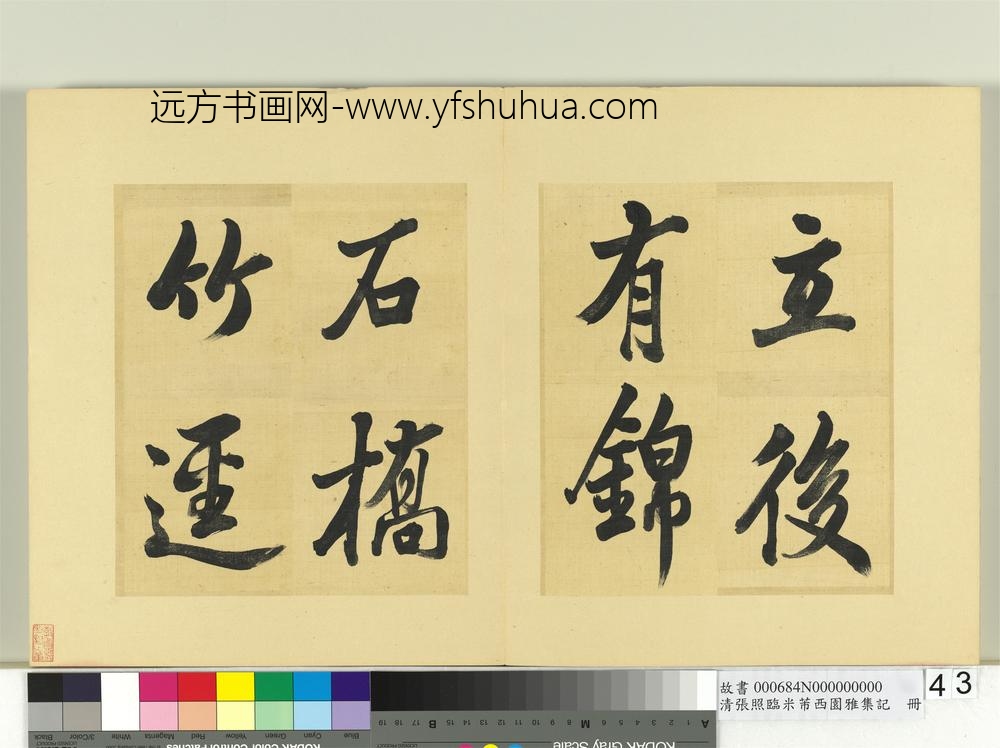 远方书画网-www.yfshuhua.com
立後
有錦
石橋
竹逕
故書 000684N000000000
清張照臨米芾西園雅集記 冊
43
Blue Cyan Green Yellow Red Magenta White 3/Color Black
A 1 2 3 4 5 6 M 8 9 10 11 12 13 14 15 B 17 18 19
KODAK Gray Scale
KODAK Color Control Patches